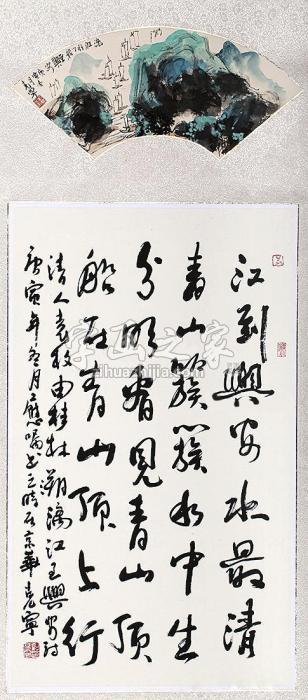 江到興安水最清
青山簇簇水中生
分明看見青山頂
船在青山頂上行
清人袁枚由桂林溯漓江至興安詩
庚寅年月應囑書之時在京華克寧
字画之家
zihuazhijia.com